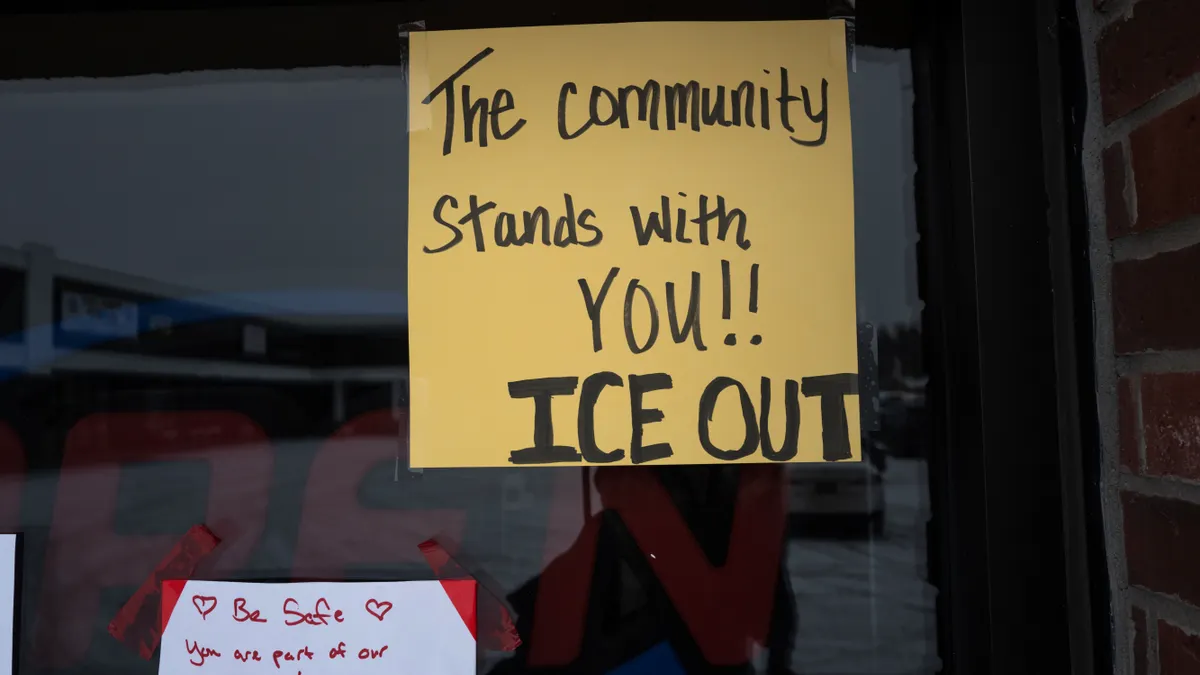 The community
Stands with
YOU!!
ICE OUT
OPEN
♡ Be Safe ♡
You are part of our